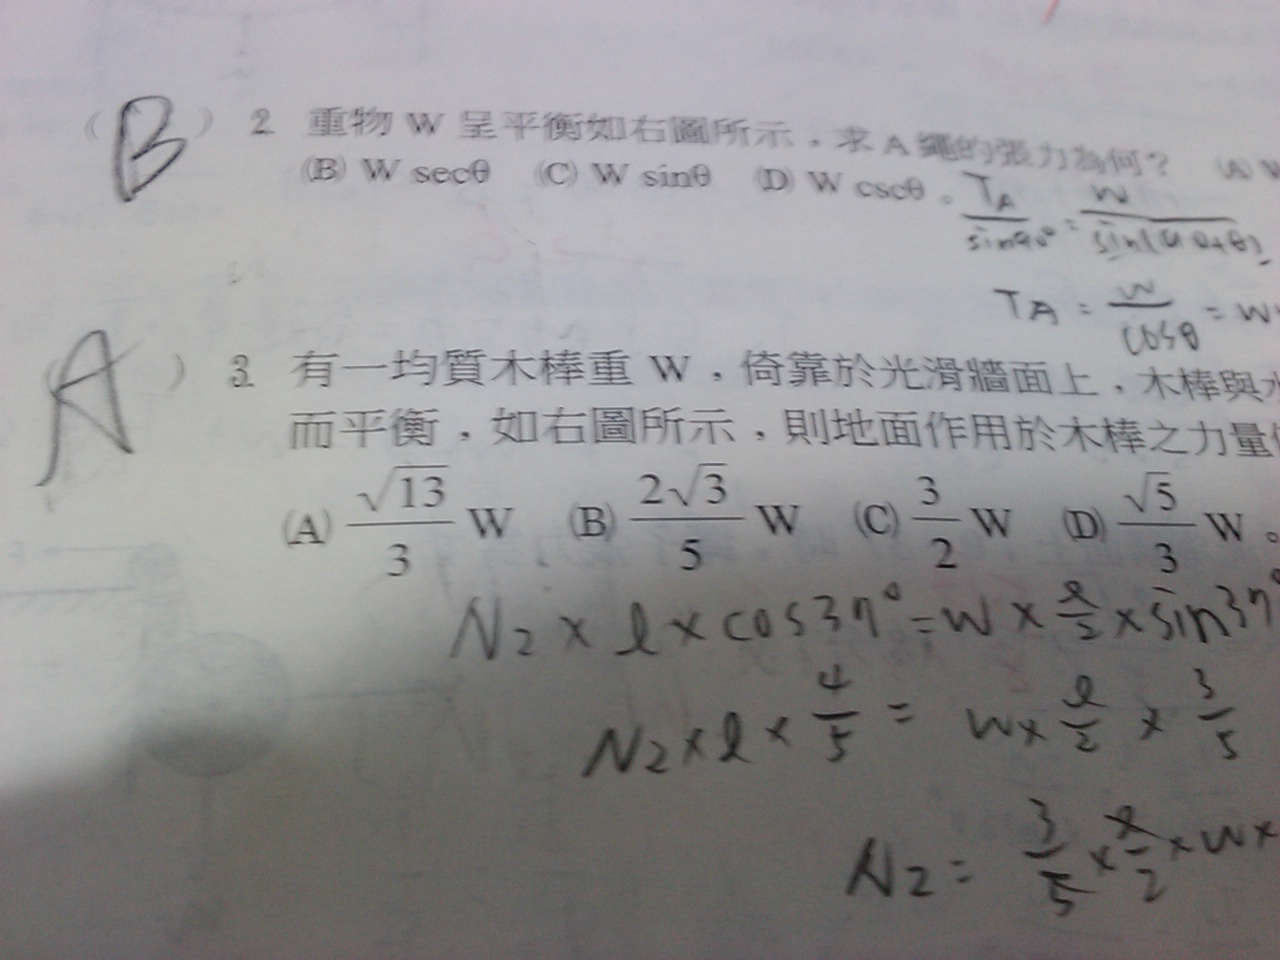 (B) 2. 重物 W 呈平衡如右圖所示，求 A 繩的張力為何？ (A) W
(B) W secθ (C) W sinθ (D) W cscθ。
T_A / sin90° = W / sin(90+θ)
T_A = W / cosθ = W
(A) 3. 有一均質木棒重 W，倚靠於光滑牆面上，木棒與水
而平衡，如右圖所示，則地面作用於木棒之力量
(A) √13/3 W (B) 2√3/5 W (C) 3/2 W (D) √5/3 W。
N2 × l × cos37° = W × l/2 × sin37°
N2 × l × 4/5 = W × l/2 × 3/5
N2 = 3/5 × l/2 × W ×